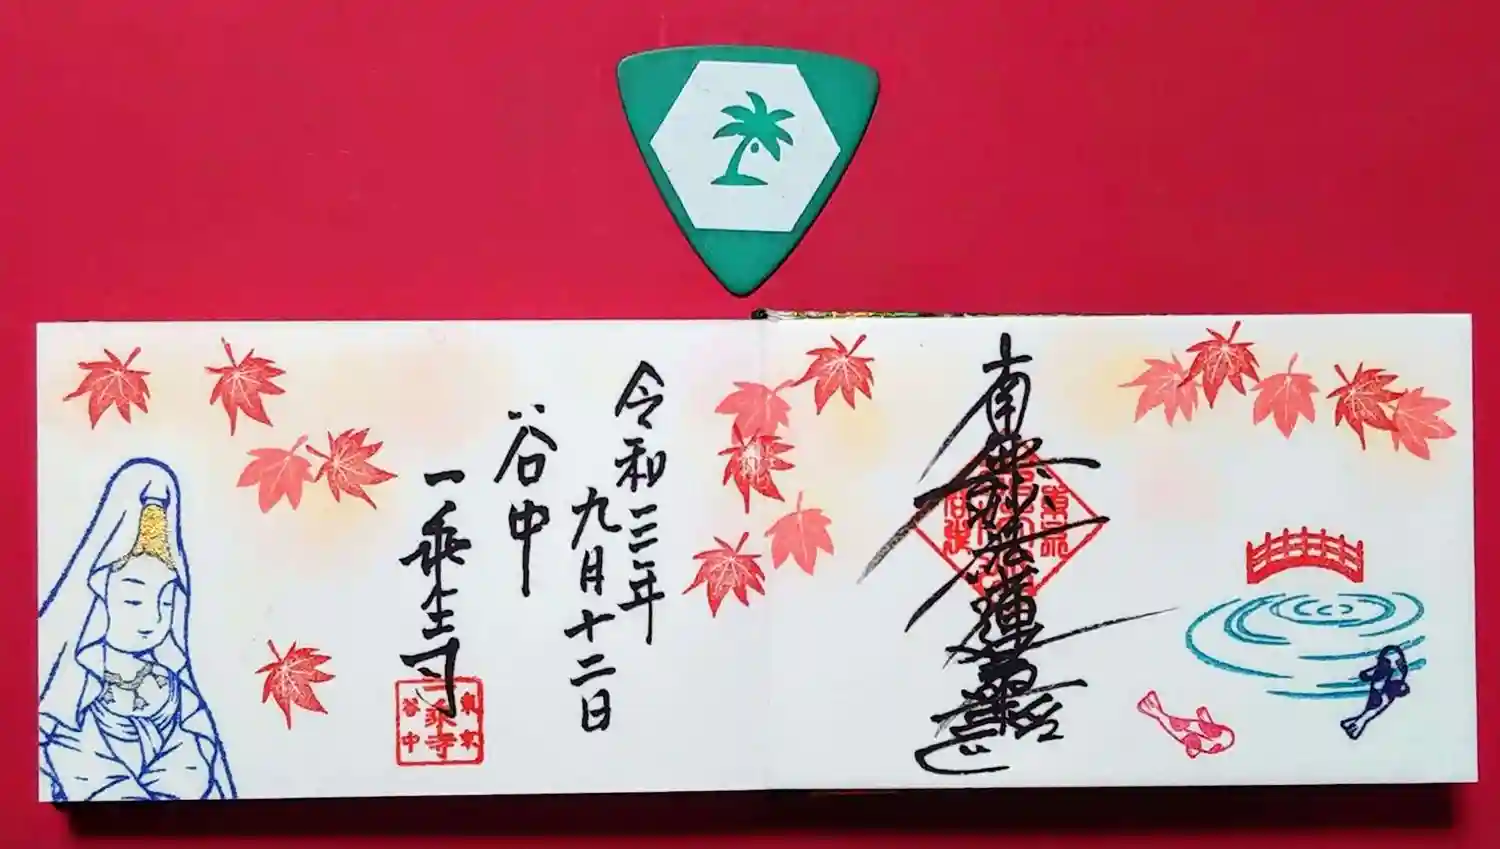 南無妙法蓮華経
令和三年
九月十二日
谷中
一乗寺
東京
乗寺
谷中